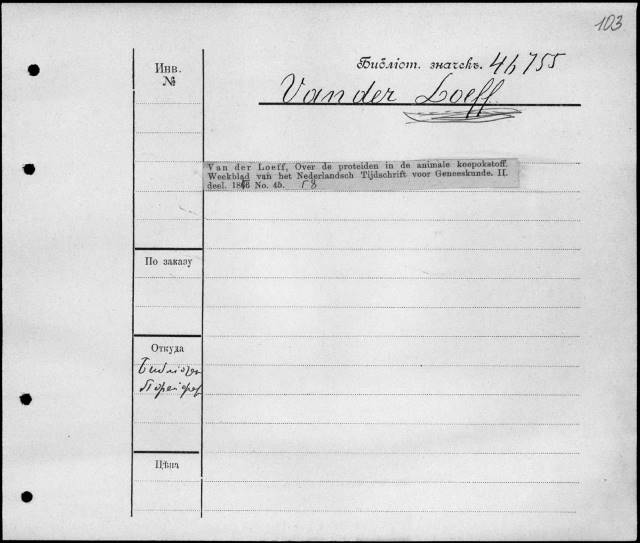 103
Инв. №
Библіот. значекъ. 46755
Van der Loeff
Van der Loeff, Over de proteiden in de animale koepokstoff.
Weekblad van het Nederlandsch Tijdschrift voor Geneeskunde. II.
deel. No. 45.
По заказу
Откуда
Цѣна